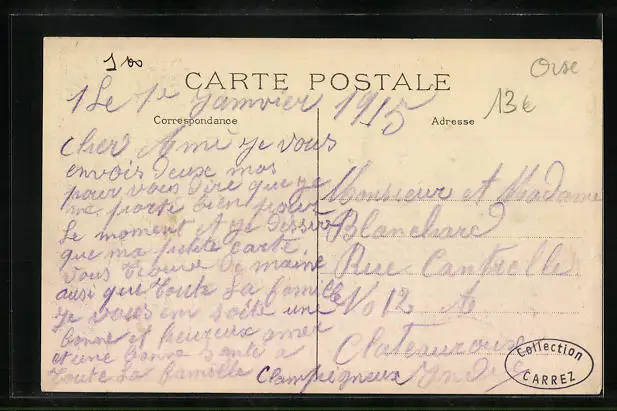 1 00
Oise
CARTE POSTALE
13€
1 Le 1e Janvier 1915
Correspondance
Adresse
Cher Ami Je vous
envois deux mos
pour vous dire que je
me porte bien pour
Le moment et je desire
que ma petite carte
vous trouve de maine
ausi que toute La famille
Je vous en soite une
bonne et heureux anner
et une bonne santé a
toute La famille
Monsieur et Madame
Blanchard
Rue Cantrelle
No 12 A
Clateauroux
Indre
Collection
CARREZ